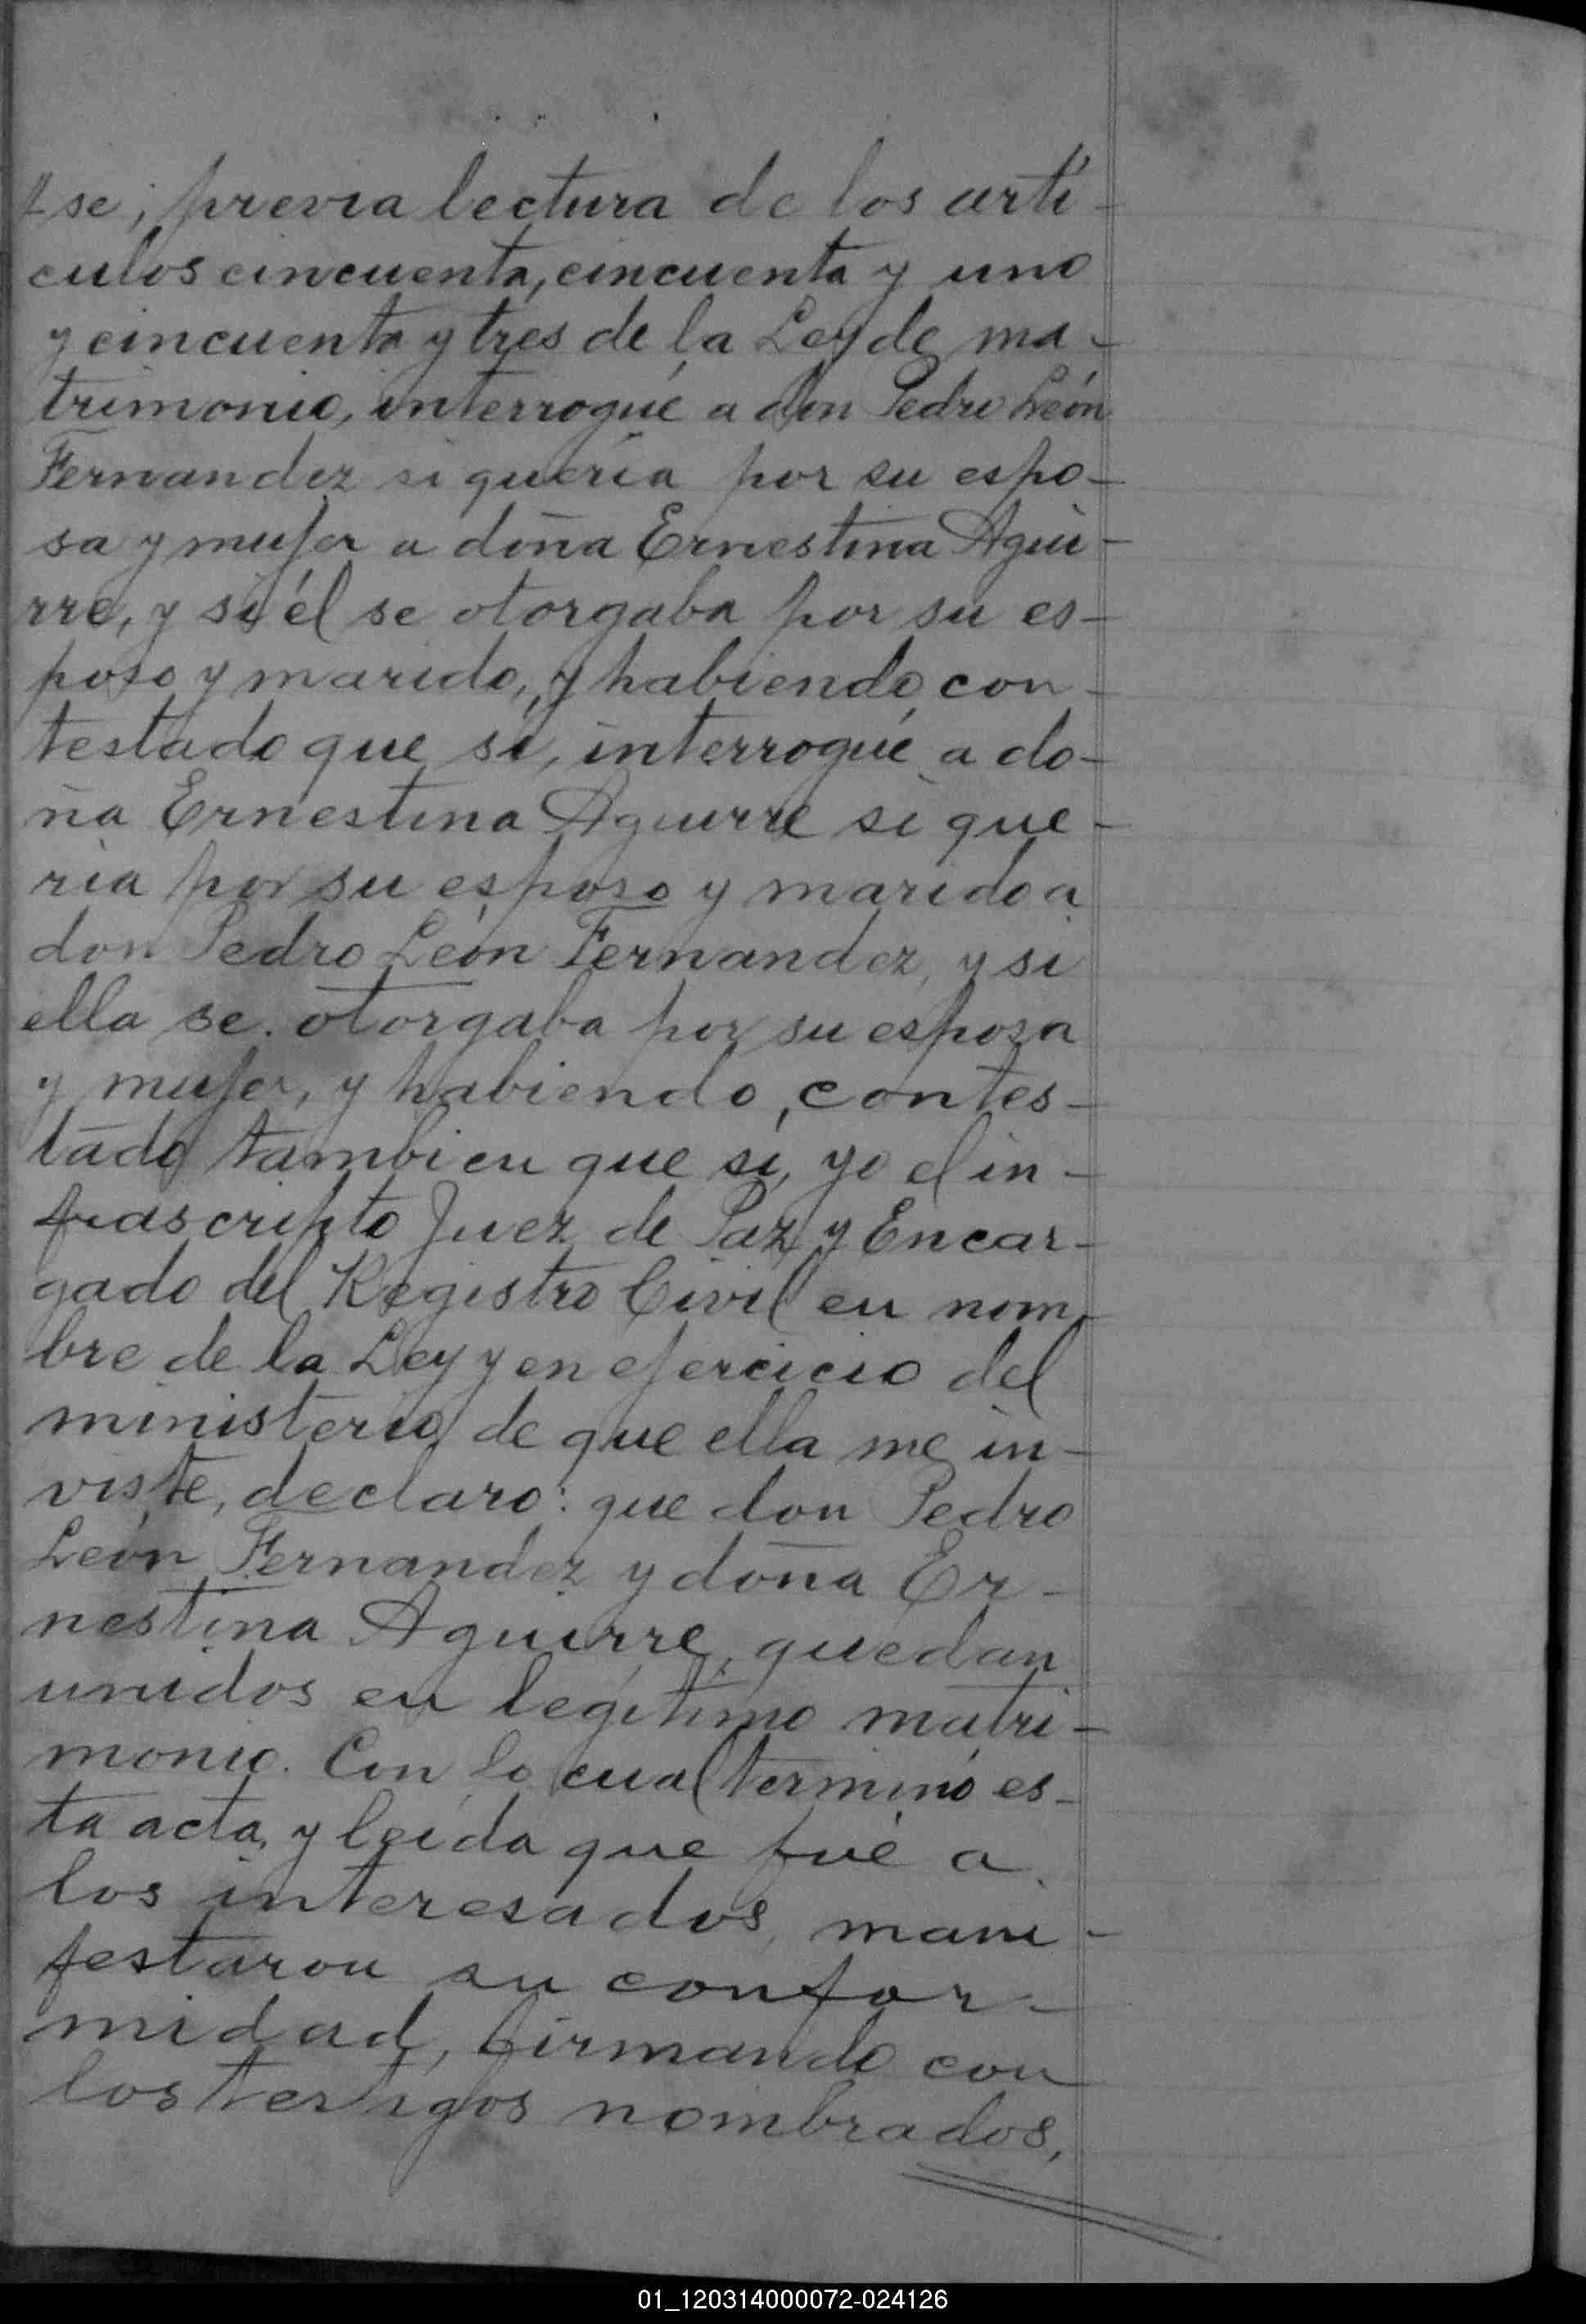 se, previa lectura de los artí-
culos cincuenta, cincuenta y uno
y cincuenta y tres de la Ley de ma-
trimonio, interrogué a don Pedro León
Fernandez si quería por su espo-
sa y mujer a doña Ernestina Agui-
rre, y si él se otorgaba por su es-
poso y marido, y habiendo con-
testado que sí, interrogué a do-
ña Ernestina Aguirre si que-
ría por su esposo y marido a
don Pedro León Fernandez, y si
ella se otorgaba por su esposa
y mujer, y habiendo contes-
tado tambien que sí, yo el in-
frascripto Juez de Paz y Encar-
gado del Registro Civil en nom-
bre de la Ley y en ejercicio del
ministerio de que ella me in-
viste, declaro: que don Pedro
León Fernandez y doña Er-
nestina Aguirre, quedan
unidos en legítimo matri-
monio. Con lo cual terminó es-
ta acta, y leída que fué a
los interesados, mani-
festaron su confor-
midad, firmando con
los testigos nombrados,
01_120314000072-024126